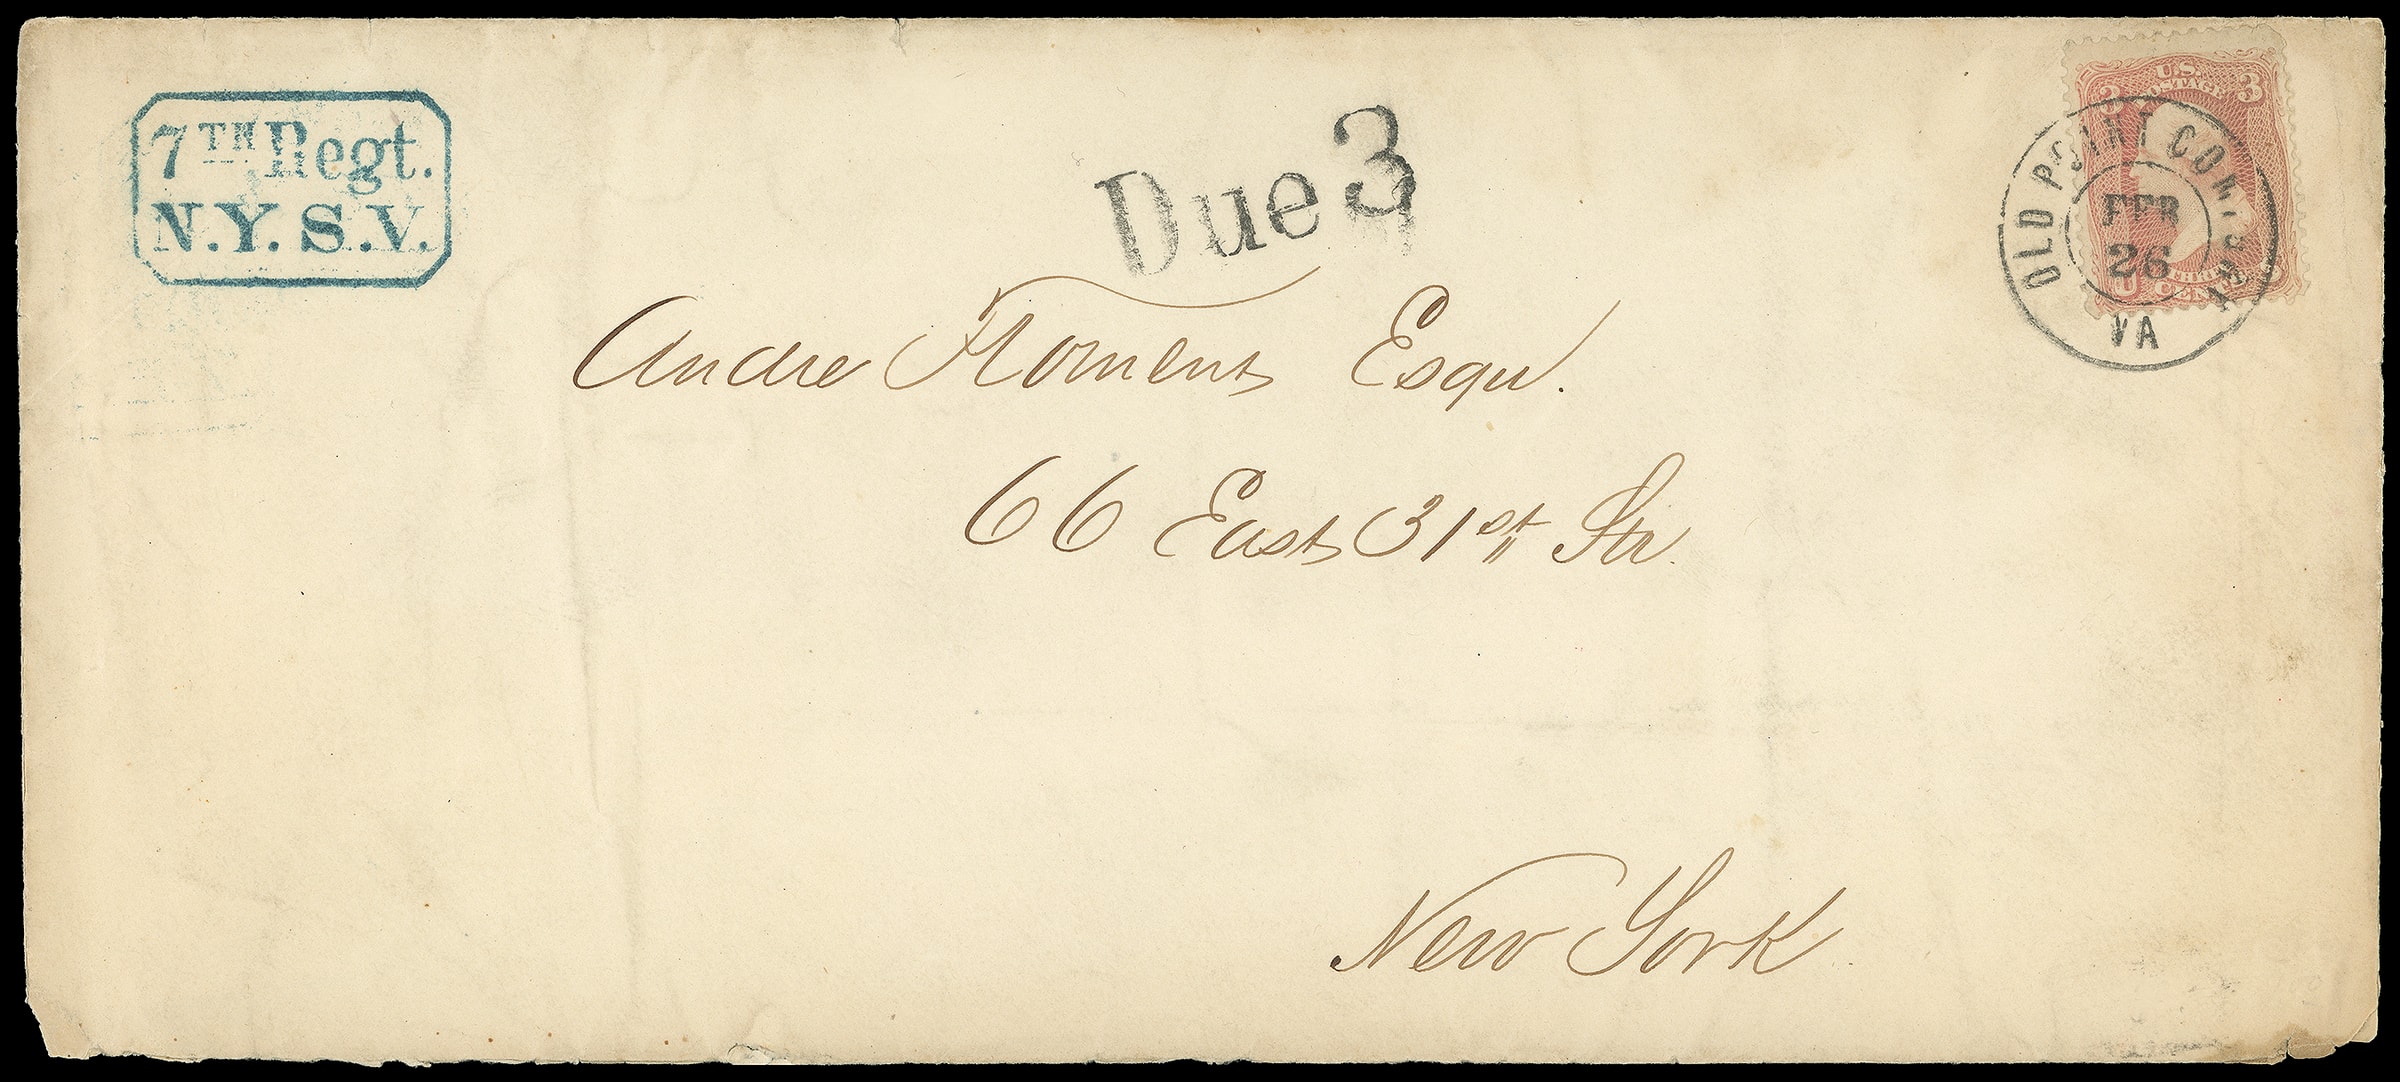 7TH Regt.
N.Y.S.V.
Due 3
U.S.
POSTAGE
3 3
THREE
CENTS
OLD POINT COMFORT
FEB
26
VA
Andre Froment Esqr.
66 East 31st Str.
New York